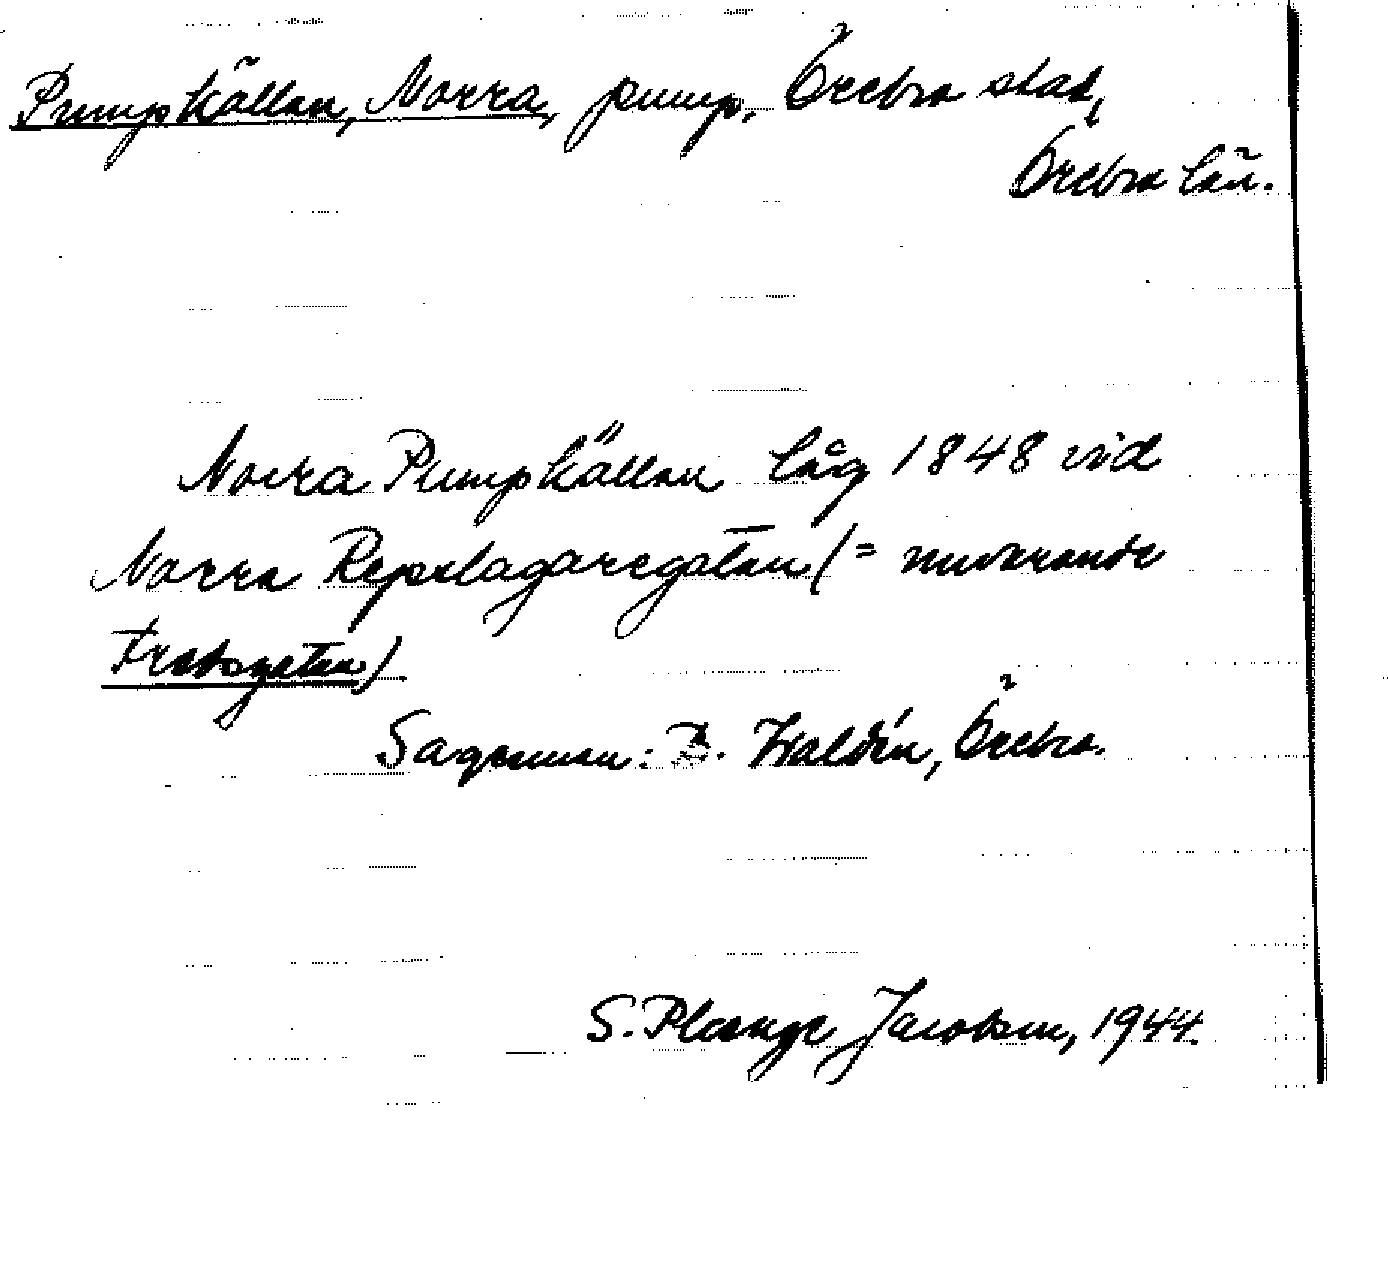 Pumpkällan, Norra, pump, Örebro stad,
Örebro län.
Norra Pumpkällan låg 1848 vid
Norra Repslagaregatan (= nuvarande
Fredsgatan).
Sagesman: B. Waldén, Örebro.
S. Plange Jacobson, 1944.